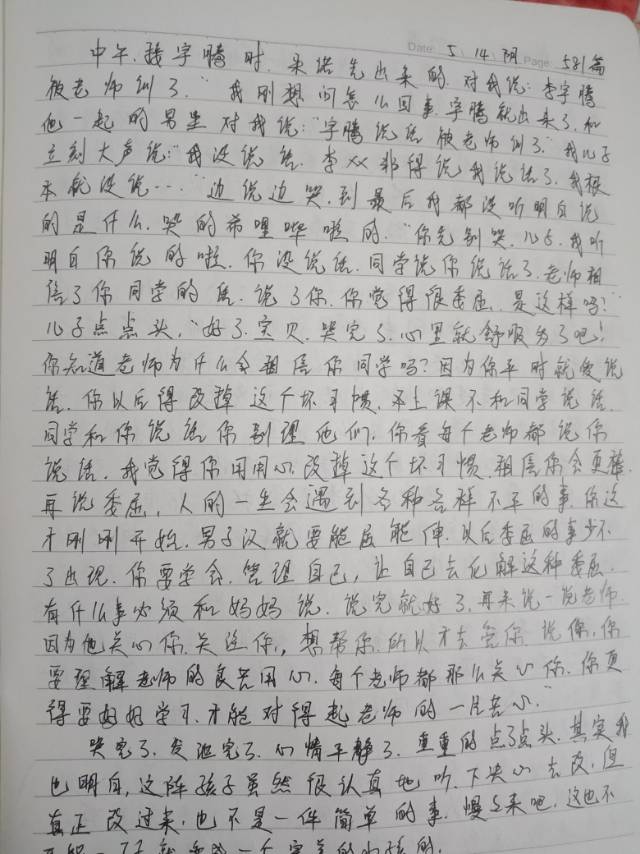 Date: 5.14.阴 Page: 581篇
中午.接宇腾时.来诺先出来的.对我说:李宇腾
被老师训了."我刚想问怎么回事.宇腾就出来了.和
他一起的男生对我说:"宇腾说话被老师训了."我儿子
立刻大声说:"我没说话.李××非得说我说话了.我根
本就没说…."边说边哭.到最后我都没听明白说
的是什么.哭的希哩哗啦的."你先别哭.儿子.我听
明白你说的啦.你没说话.同学说你说话了.老师相
信了你同学的话.说了你.你觉得很委屈.是这样吗?"
儿子点点头."好了.宝贝.哭完了.心里就舒服多了吧!
你知道老师为什么会相信你同学吗?因为你平时就爱说
话.你以后得改掉这个坏习惯.不上课不和同学说话.
同学和你说话你别理他们.你看每个老师都说你
说话.我觉得你用用心.改掉这个坏习惯.相信你会更棒
再说委屈.人的一生会遇到各种各样不平的事.你这
才刚刚开始.男子汉就要能屈能伸.以后委屈的事少不
了出现.你要学会.管理自己,让自己去化解这种委屈.
有什么事必须和妈妈说.说完就好了.再来说一说老师.
因为他关心你.关注你,想帮你.所以才去管你.说你.你
要理解老师的良苦用心.每个老师都那么关心你.你更
得要好好学习.才能对得起老师的一片苦心."
哭完了.发泄完了.心情平静了.重重的点了点头.其实我
也明白,这阵孩子虽然很认真地听.下决心去改.但
真正改过来.也不是一件简单的事.慢慢来吧.这也不